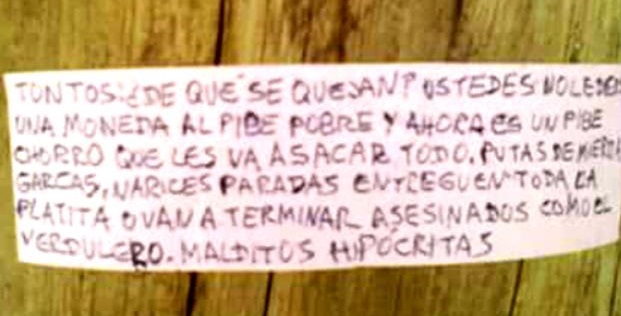 TONTOS: ¿DE QUE SE QUEJAN? USTEDES NO LE DIERON
UNA MONEDA AL PIBE POBRE Y AHORA ES UN PIBE
CHORRO QUE LES VA A SACAR TODO. PUTAS DE MIERDA
GARCAS, NARICES PARADAS ENTREGUEN TODA LA
PLATITA O VAN A TERMINAR ASESINADOS COMO EL
VERDULERO. MALDITOS HIPÓCRITAS